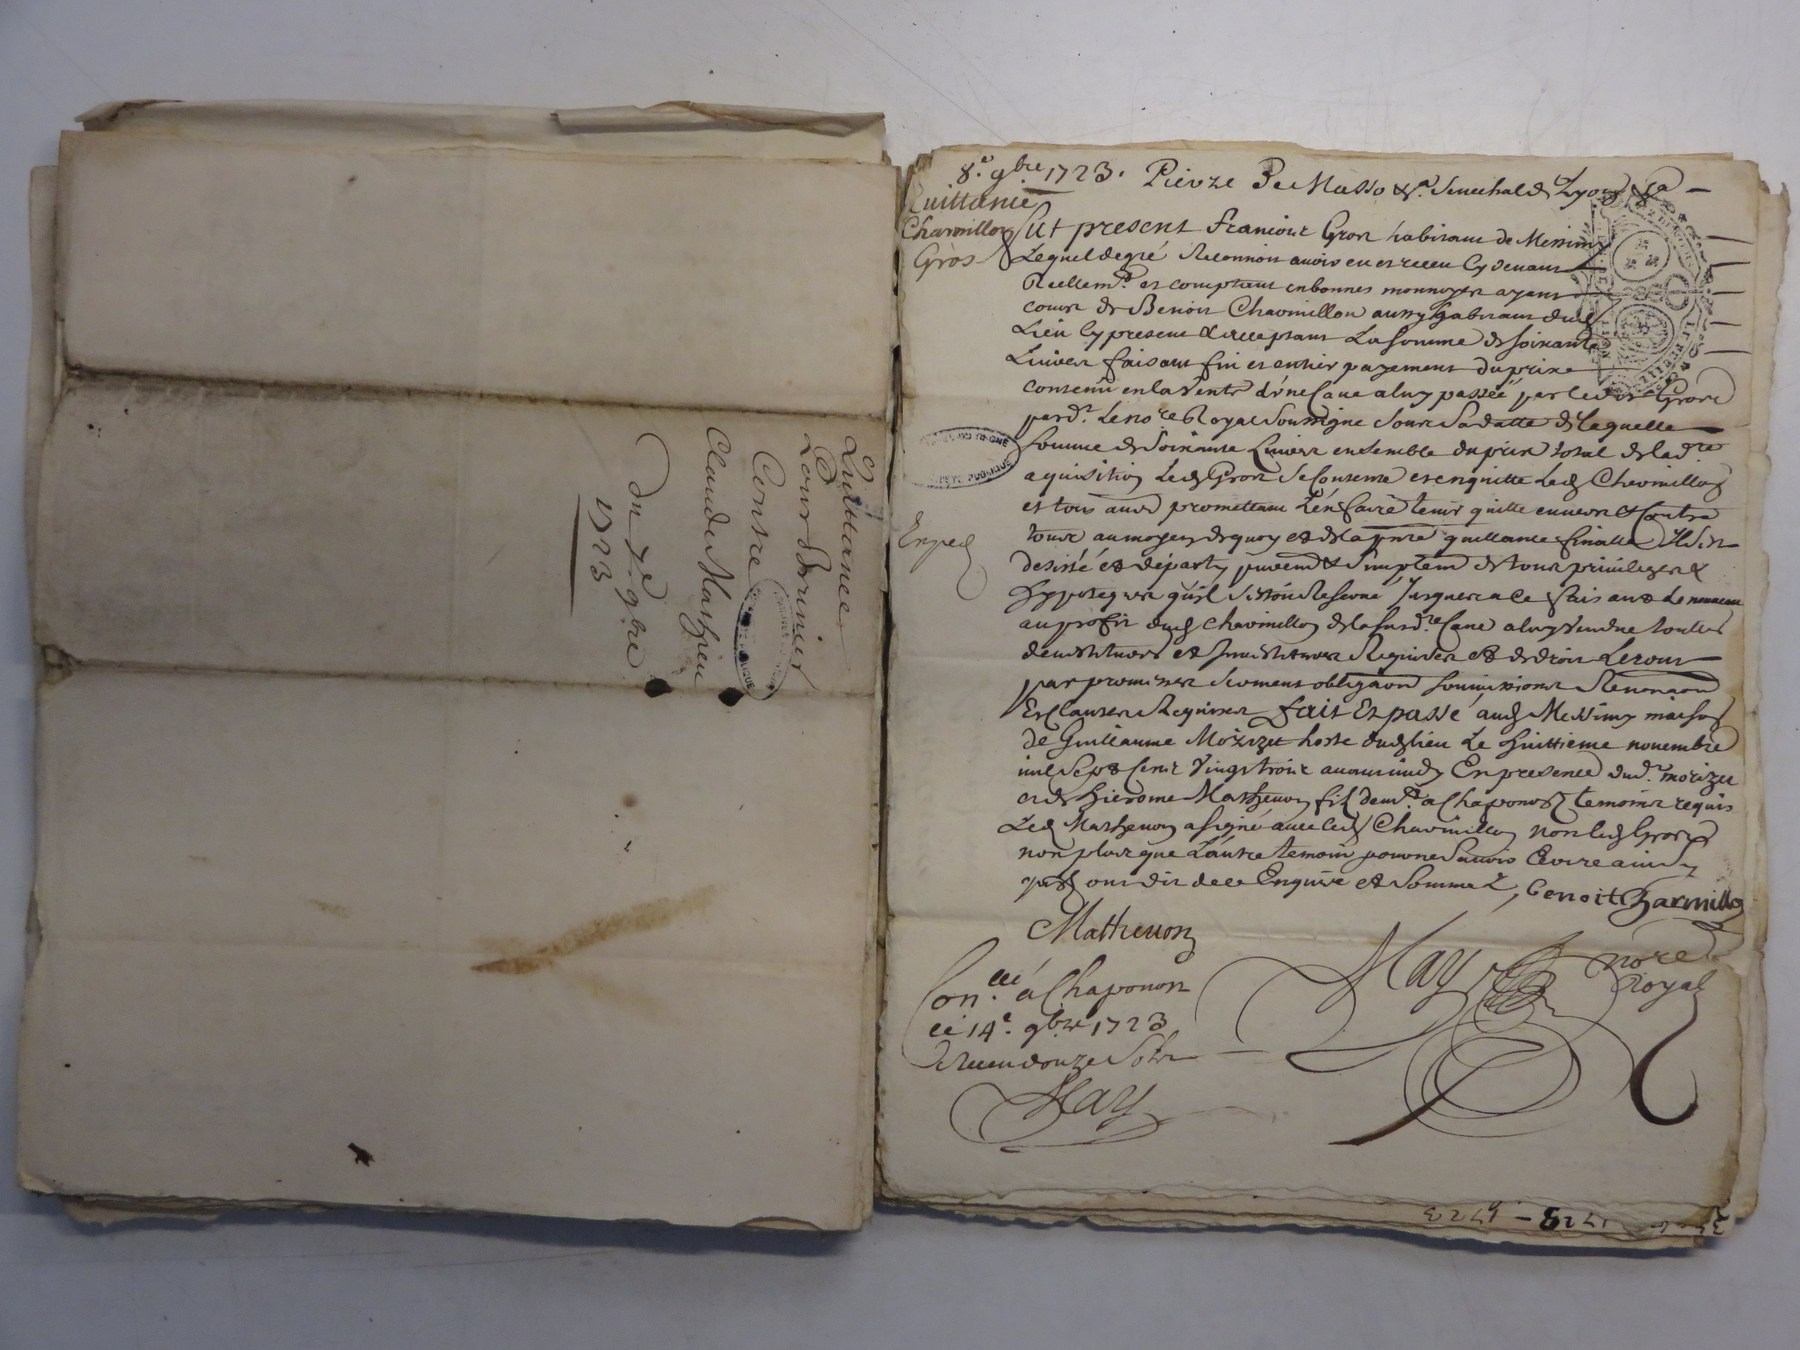 Quittance
Pour Perinier
Contre
Claude Matheu
Du 7e 9bre
1723
8e. 9bre 1723. Pierre De Masso &r. Senechal de Lyon &ca
Quittance
Charmillon
Gros
Fut present Francois Gros habitant de Messimy
Lequel de gré Reconnoit avoir eu et receu cy devant
Reellemt. et comptant en bonnes monnoyes ayant
cours de Benoit Charmillon aussy habitant dud
Lieu cy present & acceptant La somme de soixante
Livres faisant fin et entier payement du prix
contenu en la Vente d'une Cave a luy passée par led Sr Gros
par dt. Le nore Royal soussigné sous sa datte de laquelle
somme de Soixante Livres ensemble du prix total de lad.re
aquisition Led Gros se contente et en quitte Led Charmillon
et tous autres promettant L'en faire tenir quitte envers & Contre
Exped
tous au moyen de quoy et de la pnte quittance finalle Il s'est
desisté et départy puremt & simplemt de tous privileges &
hypoteques qu'il s'estoit Reservé Jusques a ce fait avec
au profit dud Charmillon de la susd.te Cave a luy Vendue
devestitures et Investitures Requises et de droit
par promesses serments obligaons soumissions Renonçaons
Et Clauses Requises fait Et passé aud Messimy maison
de Guillaume Morizet hoste dud lieu Le huittieme novembre
mil Sept Cent Vingt trois avant midy En presence dud. morizet
et de Hierome Mathevon fils dem.t a Chaponost temoins requis
Led Mathevon a signé avec led Charmillon non led Gros
non plus que L'autre temoin pour ne Savoir Ecrire ainsy
qu'ils ont dit de ce Enquis et Sommez, benoit Charmillon
Mathevon
May nore Royal
Con.llé á Chaponost
le 14e. 9bre 1723
Receu douze Sols
May